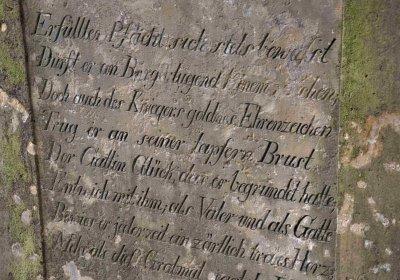 Erfüllter Pflicht sich stets bewußt
Durft er an Berg Tugend keinem weichen,
Doch auch des Kriegers goldnes Ehrenzeichen
Trug er an seiner tapfern Brust
Der Gattin Glück, das er begründet hatte,
ich mit ihm; als Vater und als Gatte
Bewies er jederzeit ein zärtlich treues Herz
Mehr als dieß Grabmal